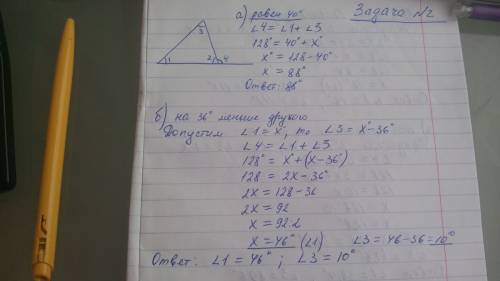 Задача №2
3
1 2 4
а) равен 40°
∠4 = ∠1 + ∠3
128° = 40° + x°
x° = 128 - 40°
x = 88°
Ответ: 88°
б) на 36° меньше другого
Допустим ∠1 = x°, то ∠3 = x° - 36°
∠4 = ∠1 + ∠3
128° = x° + (x - 36°)
128 = 2x - 36°
2x = 128 - 36
2x = 92
x = 92:2
x = 46° (∠1) ∠3 = 46 - 36 = 10°
Ответ: ∠1 = 46° ; ∠3 = 10°